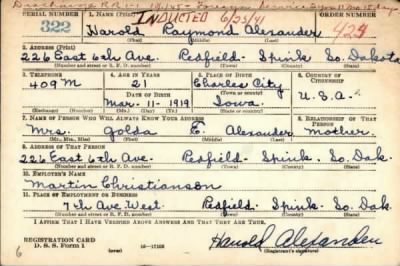 Discharge
SERIAL NUMBER 1. NAME (Print) INDUCTED 6/23/41
322 Harold Raymond Alexander 424
(First) (Middle) (Last)
2. ADDRESS (Print)
226 East 6th Ave. Redfield - Spink So. Dakota
(Number and street or R. F. D. number) (Town) (County) (State)
3. TELEPHONE 4. AGE IN YEARS 5. PLACE OF BIRTH 6. COUNTRY OF CITIZENSHIP
409 M 21 Charles City U.S.A.
DATE OF BIRTH
Mar. 11 - 1919 Iowa
7. NAME OF PERSON WHO WILL ALWAYS KNOW YOUR ADDRESS 8. RELATIONSHIP OF THAT PERSON
Mrs. Golda E. Alexander Mother
(Mr., Mrs., Miss) (First) (Middle) (Last)
9. ADDRESS OF THAT PERSON
226 East 6th Ave. Redfield - Spink. So. Dak.
(Number and street or R. F. D. number) (Town) (County) (State)
10. EMPLOYER'S NAME
Martin Christianson
11. PLACE OF EMPLOYMENT OR BUSINESS
7th Ave. West. Redfield - Spink - So. Dak.
(Number and street or R. F. D. number) (Town) (County) (State)
I AFFIRM THAT I HAVE VERIFIED ABOVE ANSWERS AND THAT THEY ARE TRUE.
REGISTRATION CARD
D. S. S. Form 1 (over) 16-17105 Harold Alexander
(Registrant's signature)
6